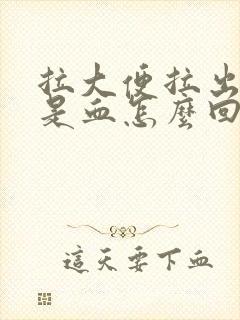 拉大便拉出
是血怎麼回
這天要下血